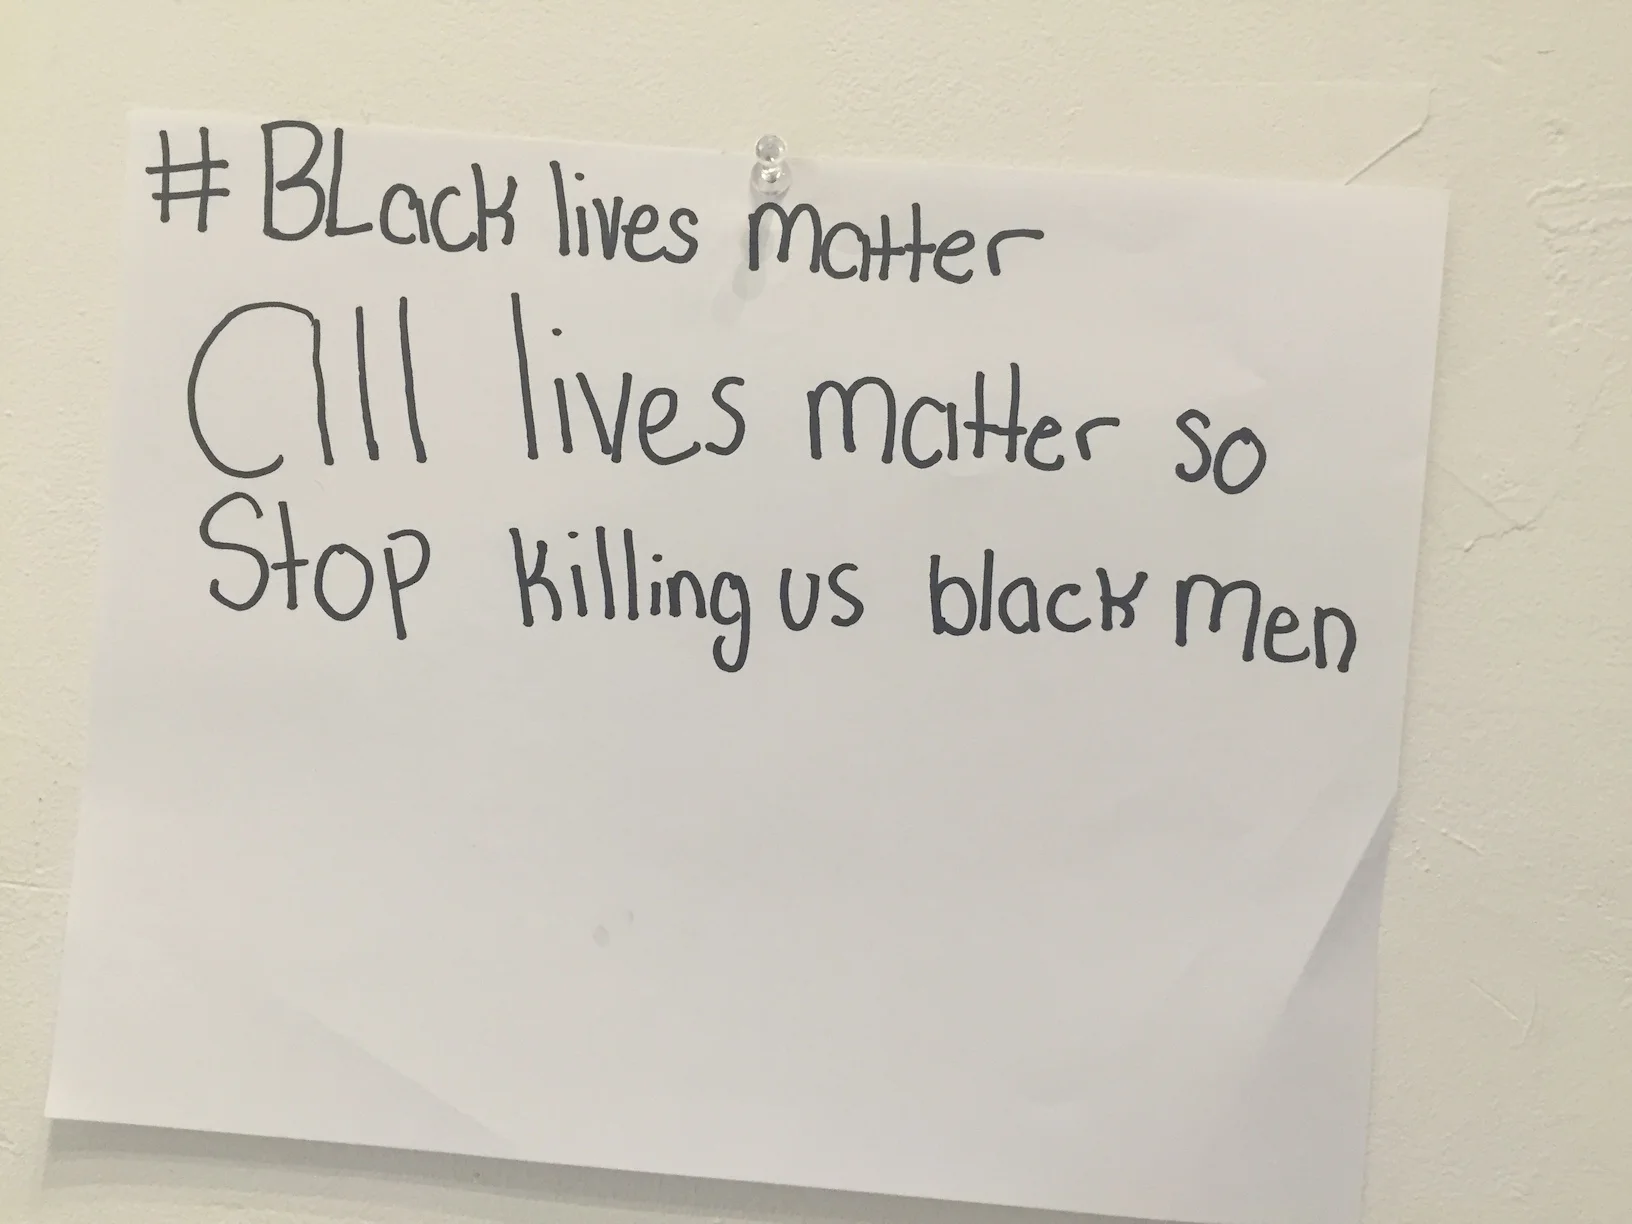 # BLack lives matter
all lives matter so
Stop killing us black men